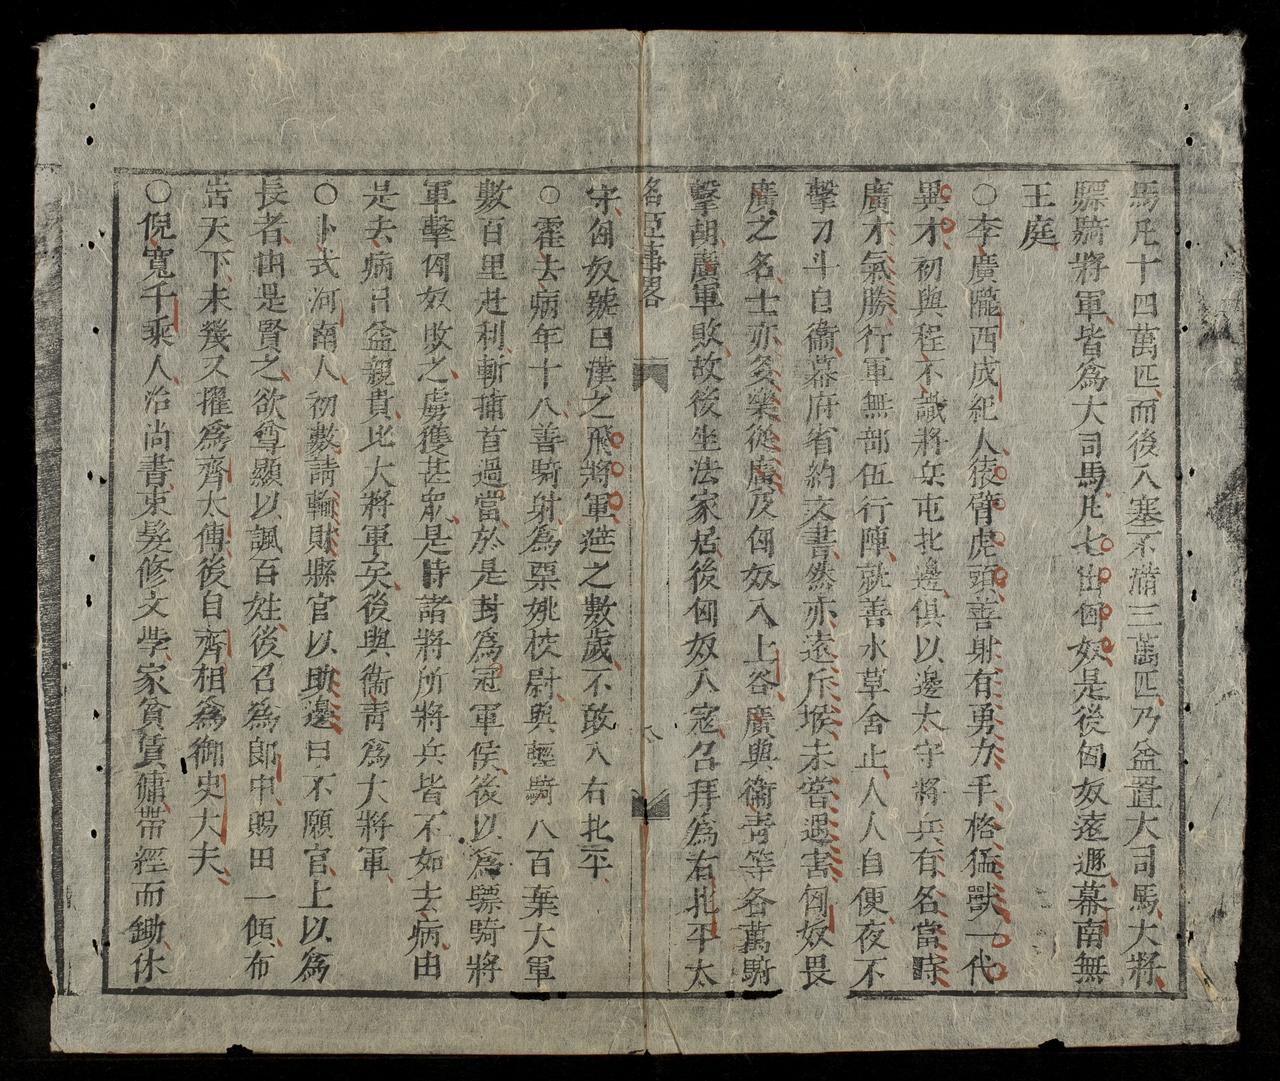 馬凡十四萬匹而後入塞不滿三萬匹乃益置大司馬大將
驃騎將軍皆爲大司馬凡七出匈奴是後匈奴遠遯幕南無
王庭
○李廣隴西成紀人猿臂虎頭善射有勇力手格猛獸一代
異才初與程不識將兵屯北邊俱以邊太守將兵有名當時
廣才氣勝行軍無部伍行陣就善水草舍止人人自便夜不
擊刀斗自衞幕府省約文書然亦遠斥堠未嘗遇害匈奴畏
廣之名士亦多樂從廣及匈奴入上谷廣與衞青等各萬騎
擊胡廣軍敗故後坐法家居後匈奴入寇召拜爲右北平太
名臣事畧
六
守匈奴號曰漢之飛將軍避之數歲不敢入右北平
○霍去病年十八善騎射爲票姚校尉與輕騎八百棄大軍
數百里赴利斬捕首過當於是封爲冠軍侯後以爲驃騎將
軍擊匈奴敗之虜獲甚衆是時諸將所將兵皆不如去病由
是去病日益親貴比大將軍矣後與衞青爲大將軍
○卜式河南人初數請輸財縣官以助邊曰不願官上以爲
長者由是賢之欲尊顯以諷百姓後召爲郎中賜田一傾布
吿天下未幾又擢爲齊太傅後自齊相爲御史大夫
○倪寬千乘人治尚書束髮修文學家貧賃傭帶經而鋤休